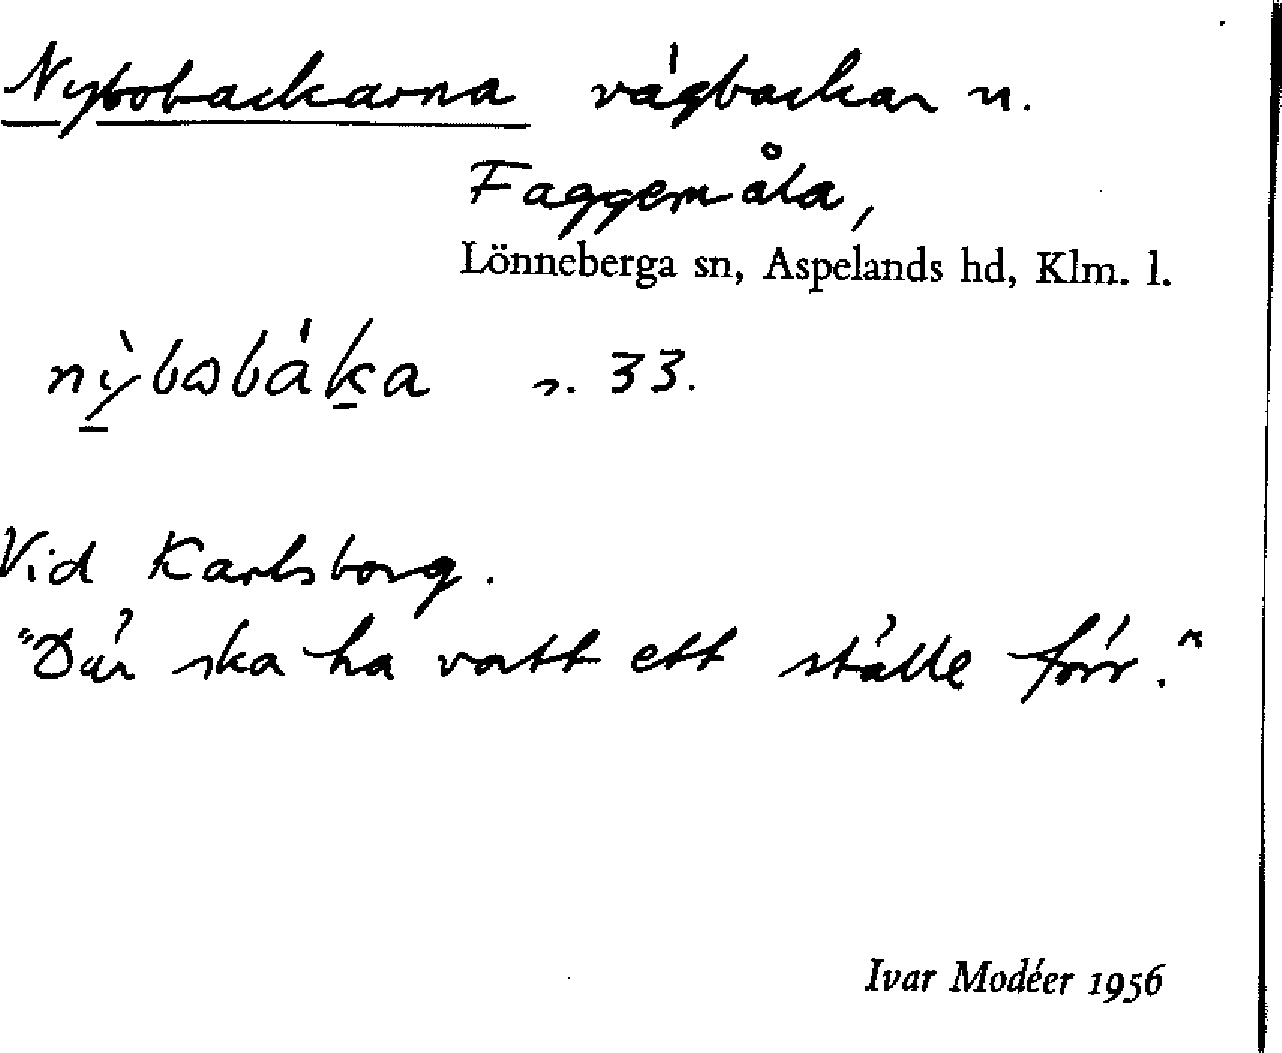 Nybobackarna vägbackar n.
Faggemåla,
Lönneberga sn, Aspelands hd, Klm. l.
s. 33.
Vid Karlsborg.
"Där ska ha vatt ett ställe förr."
Ivar Modéer 1956